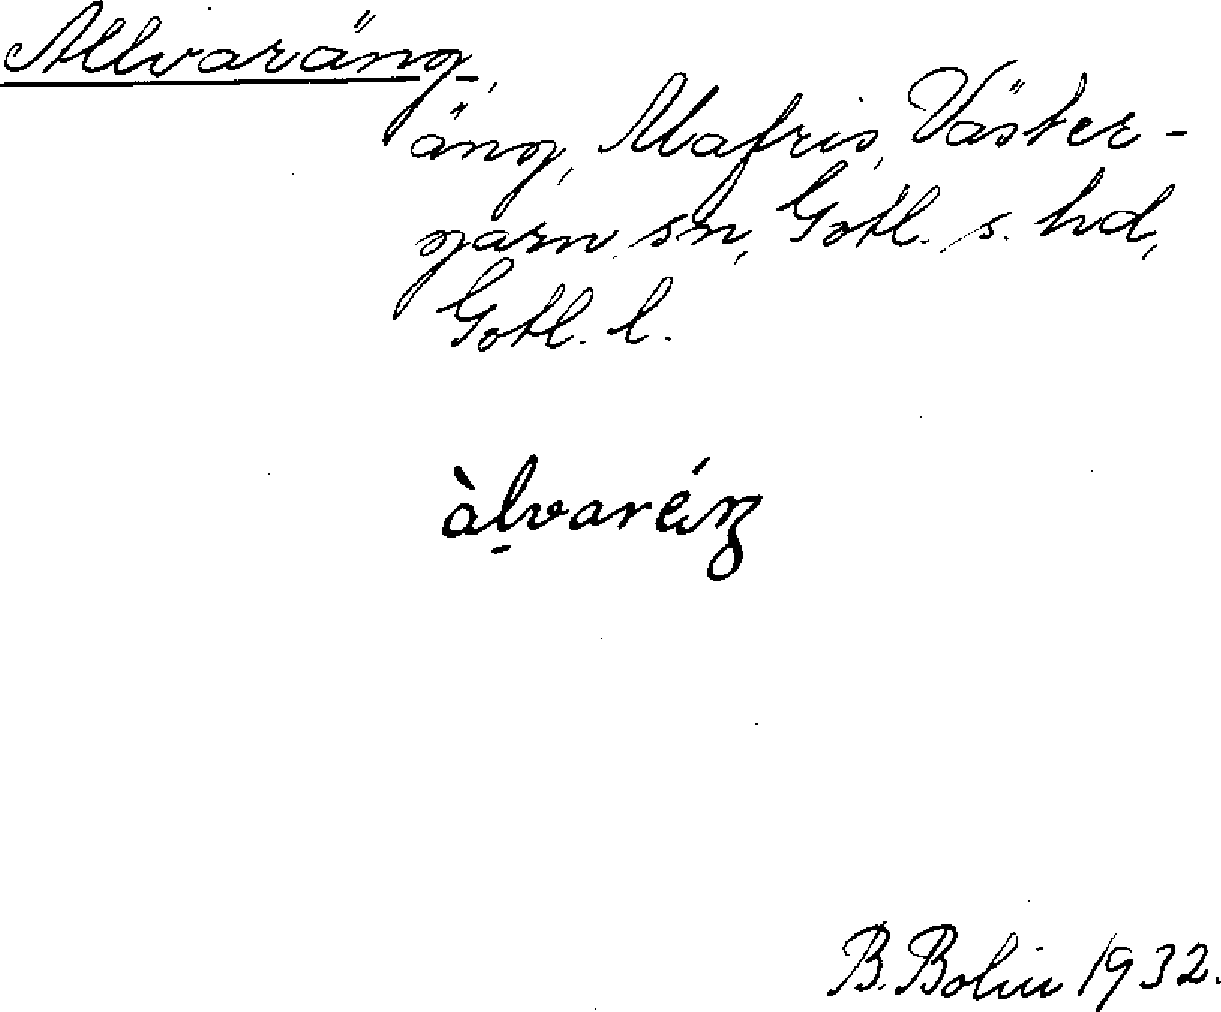 Allvaräng,
äng, Mafris, Väster-
garn sn, Gotl. s. hd,
Gotl. l.
àlvaréŋ
B. Bolin 1932.